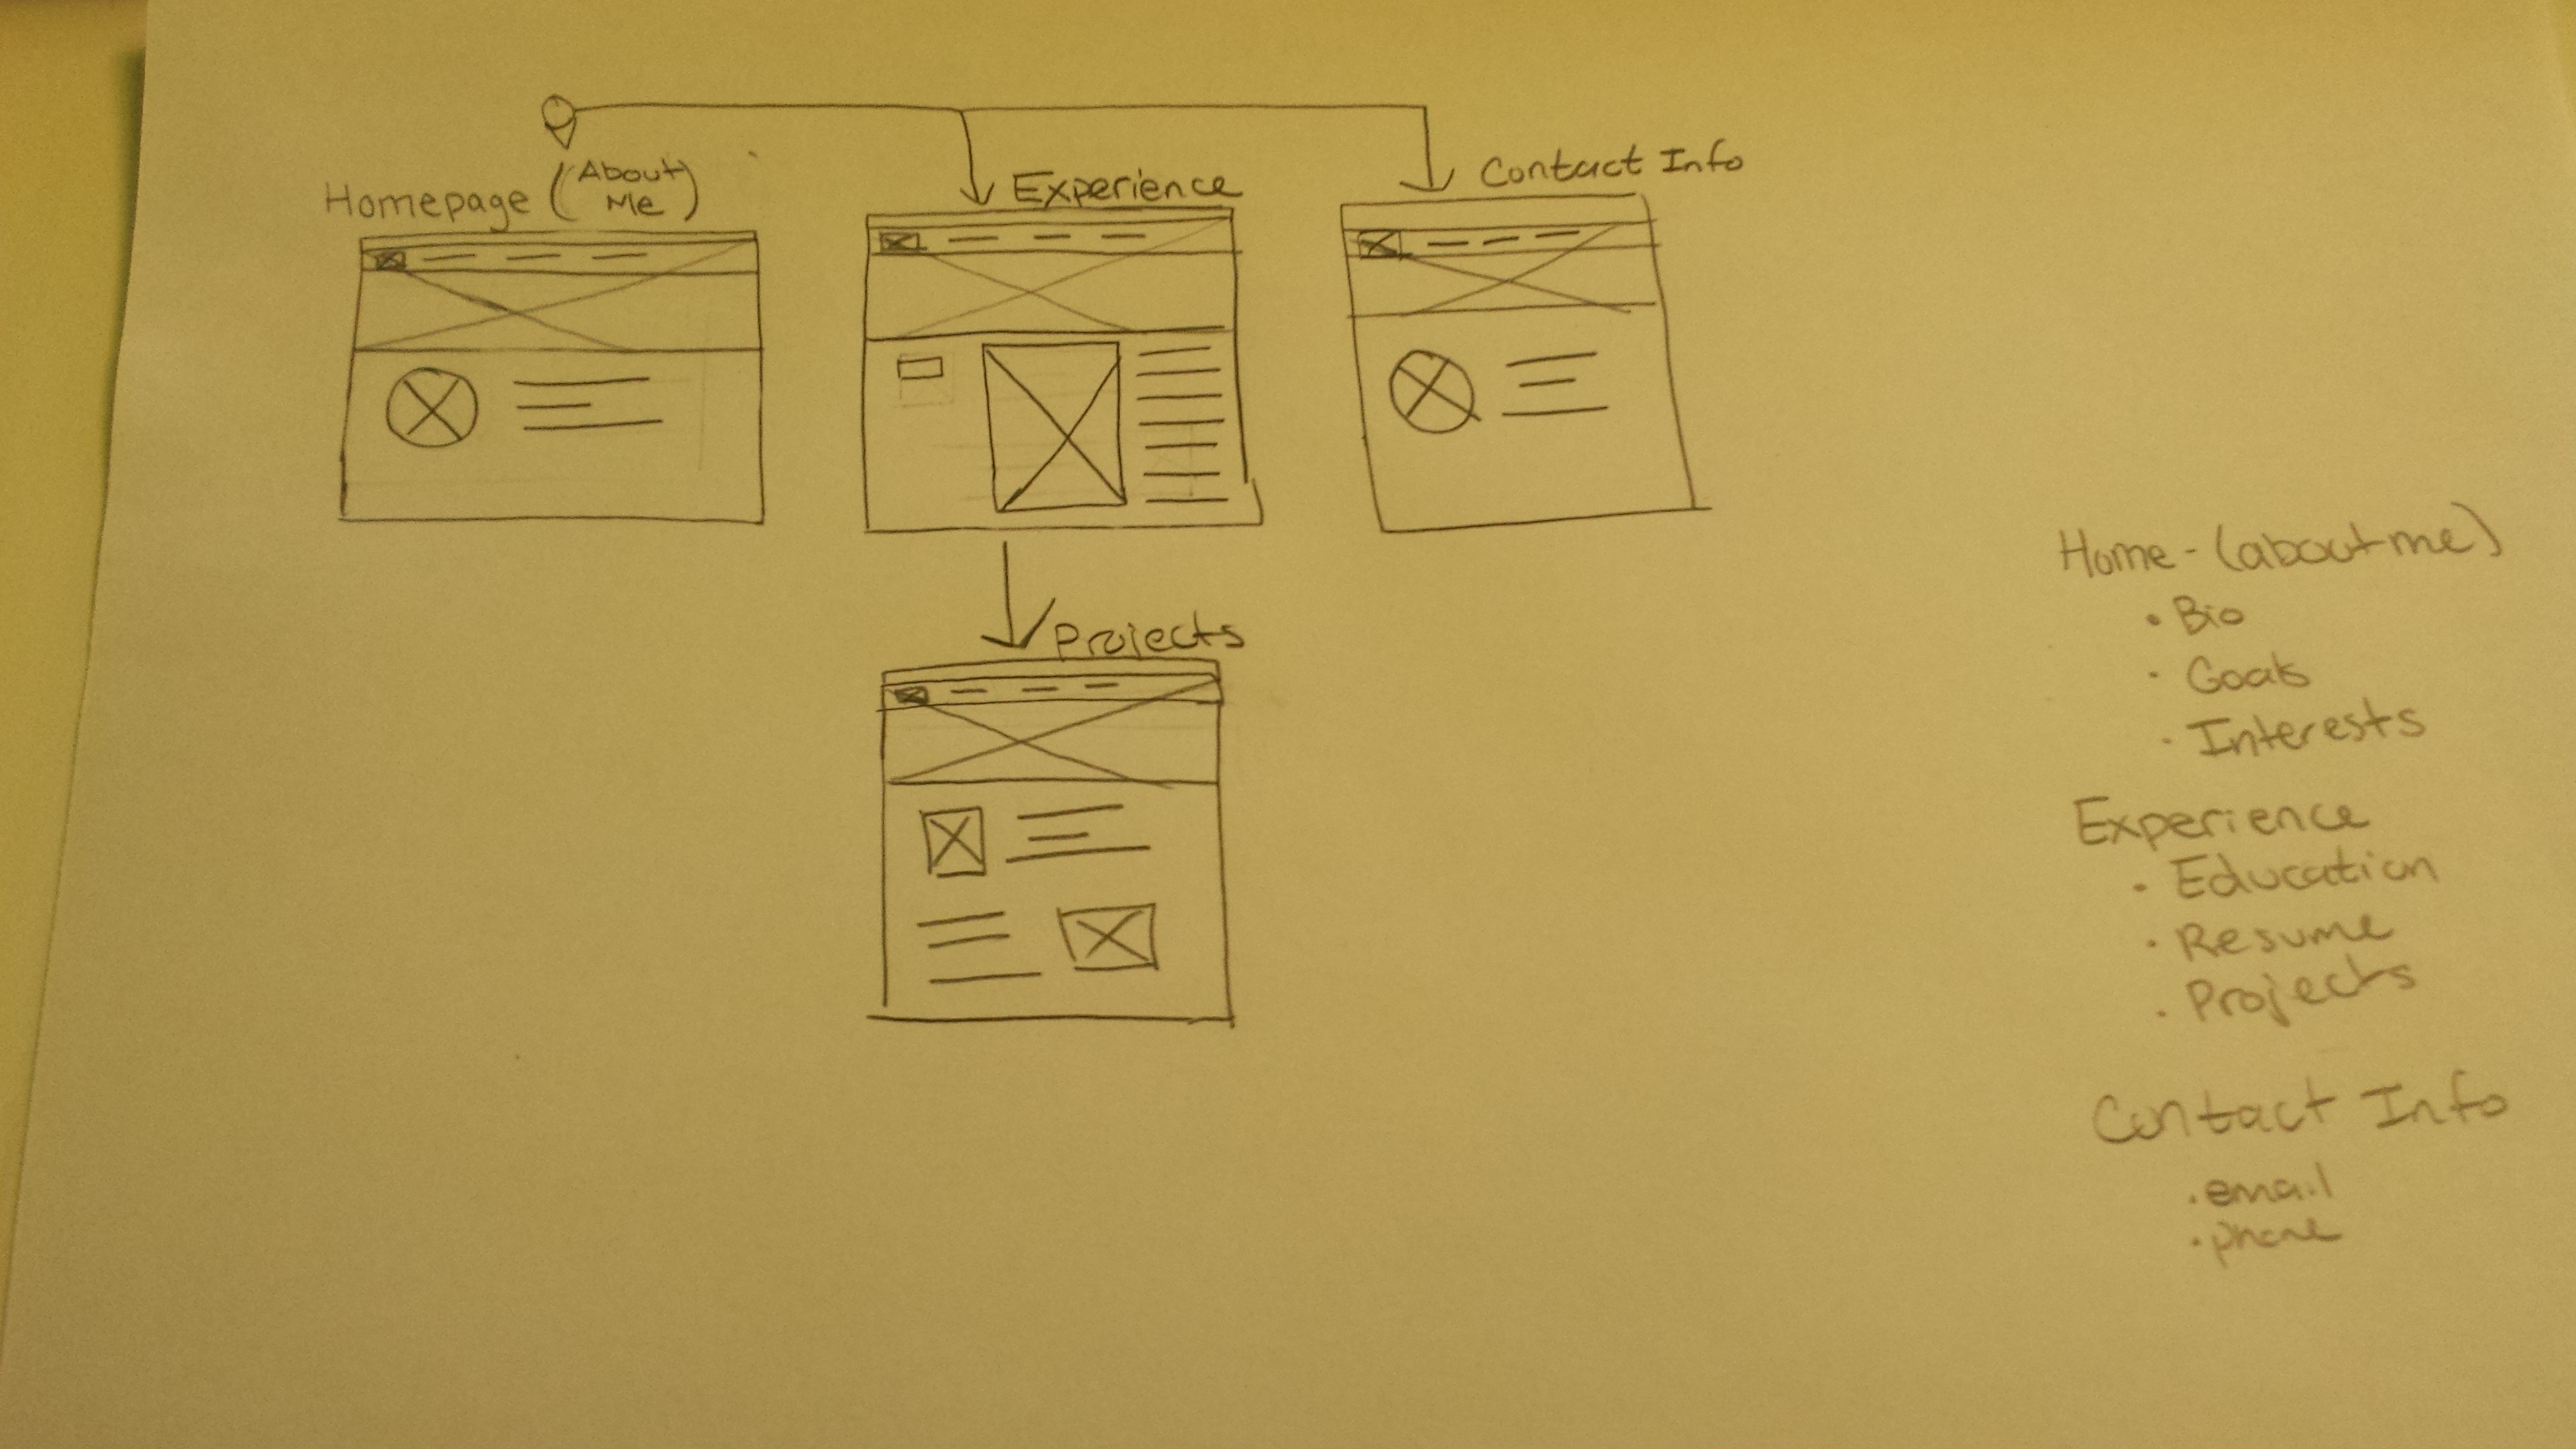 Homepage (About
Me)
Experience
Contact Info
Projects
Home - (about me)
• Bio
• Goals
• Interests
Experience
• Education
• Resume
• Projects
Contact Info
• email
• phone